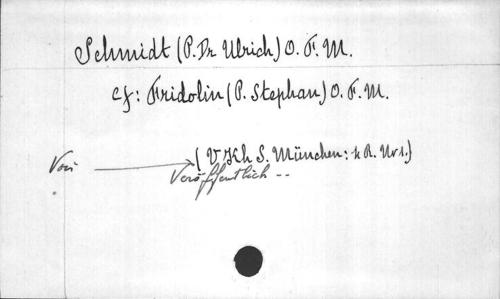 Schmidt (P. Dr. Ulrich) O. F. M.
cf: Fridolin (P. Stephan) O. F. M.
(V Kh S. München: k R. Nr 1.)
Veröffentlich --